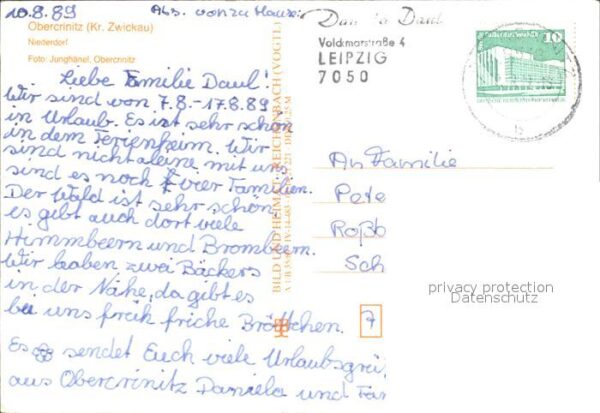 10.8.89
Abs. von zu Hause:
Obercrinitz (Kr. Zwickau)
Niederdorf
Foto: Junghänel, Obercrinitz
Liebe Familie Daul!
Wir sind von 7.8.-17.8.89
in Urlaub. Es ist sehr schön
in dem Ferienheim. Wir
sind nicht aleine mit uns
sind es noch 4 vier Familien.
Der Wald ist sehr schön
es gibt auch dort viele
Himmbeern und Brombeern.
Wir haben zwei Bäckers
in der Nähe, da gibt es
bei uns friche Bröttchen.
Es sendet Euch viele Urlaubsgrü
aus Obercrinitz Daniela und Fam
BILD UND HEIMAT REICHENBACH (VOGTL)
Daniela Daul
Volckmarstraße 4
LEIPZIG
7050
10
An Familie
Pete
Roßb
Sch
7
privacy protection
Datenschutz